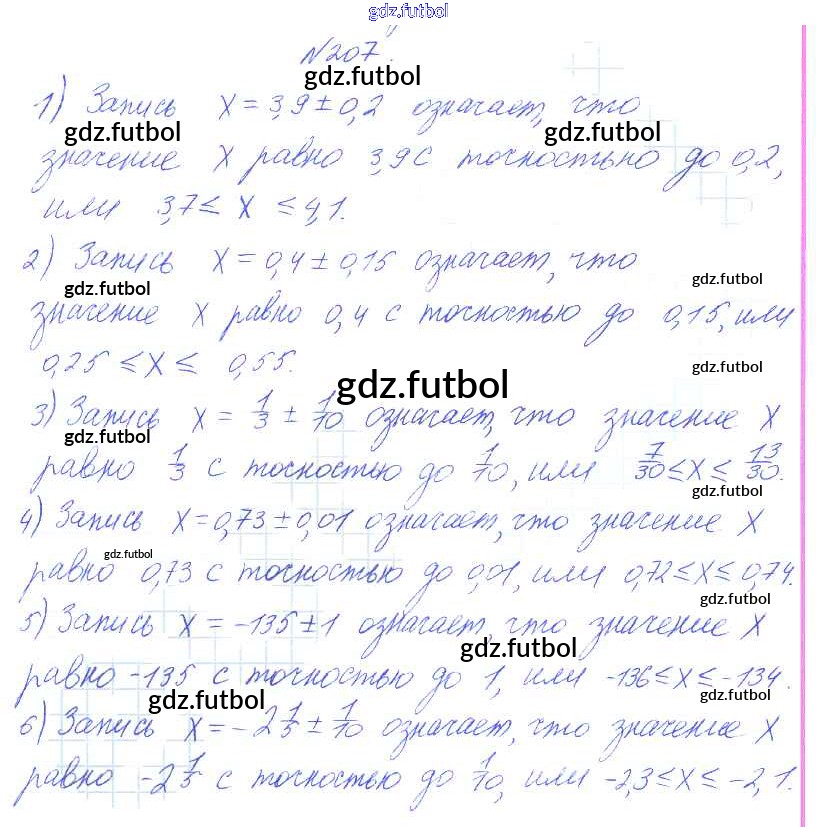 gdz.futbol
№207.
gdz.futbol
1) Запись x = 3,9 ± 0,2 означает, что
gdz.futbol gdz.futbol
значение x равно 3,9 с точностью до 0,2,
или 3,7 ≤ x ≤ 4,1.
2) Запись x = 0,4 ± 0,15 означает, что
gdz.futbol gdz.futbol
значение x равно 0,4 с точностью до 0,15, или
0,25 ≤ x ≤ 0,55.
gdz.futbol
gdz.futbol
3) Запись x = 1/3 ± 1/10 означает, что значение x
gdz.futbol
равно 1/3 с точностью до 1/10, или 7/30 ≤ x ≤ 13/30.
gdz.futbol
4) Запись x = 0,73 ± 0,01 означает, что значение x
gdz.futbol
равно 0,73 с точностью до 0,01, или 0,72 ≤ x ≤ 0,74.
gdz.futbol
5) Запись x = -135 ± 1 означает, что значение x
gdz.futbol
равно -135 с точностью до 1, или -136 ≤ x ≤ -134.
gdz.futbol gdz.futbol
6) Запись x = -2 1/5 ± 1/10 означает, что значение x
равно -2 1/5 с точностью до 1/10, или -2,3 ≤ x ≤ -2,1.